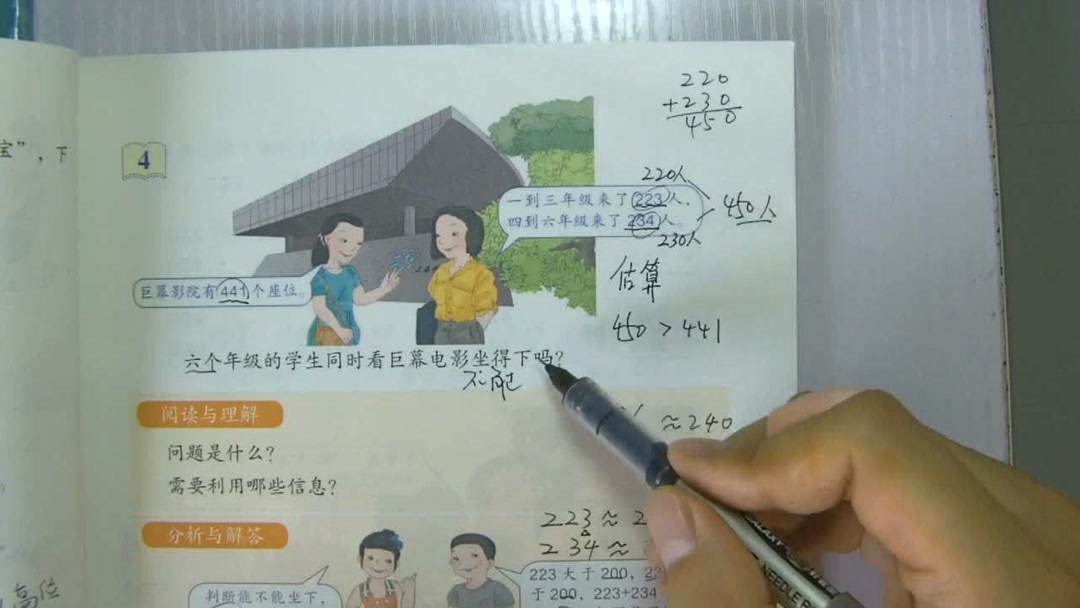 宝"，下
4
220
+230
450
220人
一到三年级来了223人，
四到六年级来了234人。
450人
230人
巨幕影院有441个座位。
估算
450 > 441
六个年级的学生同时看巨幕电影坐得下吗？
不能
阅读与理解
≈240
问题是什么？
需要利用哪些信息？
223 ≈ 2
分析与解答
234 ≈
223 大于 200，
判断能不能坐下，
于 200，223+234
高位